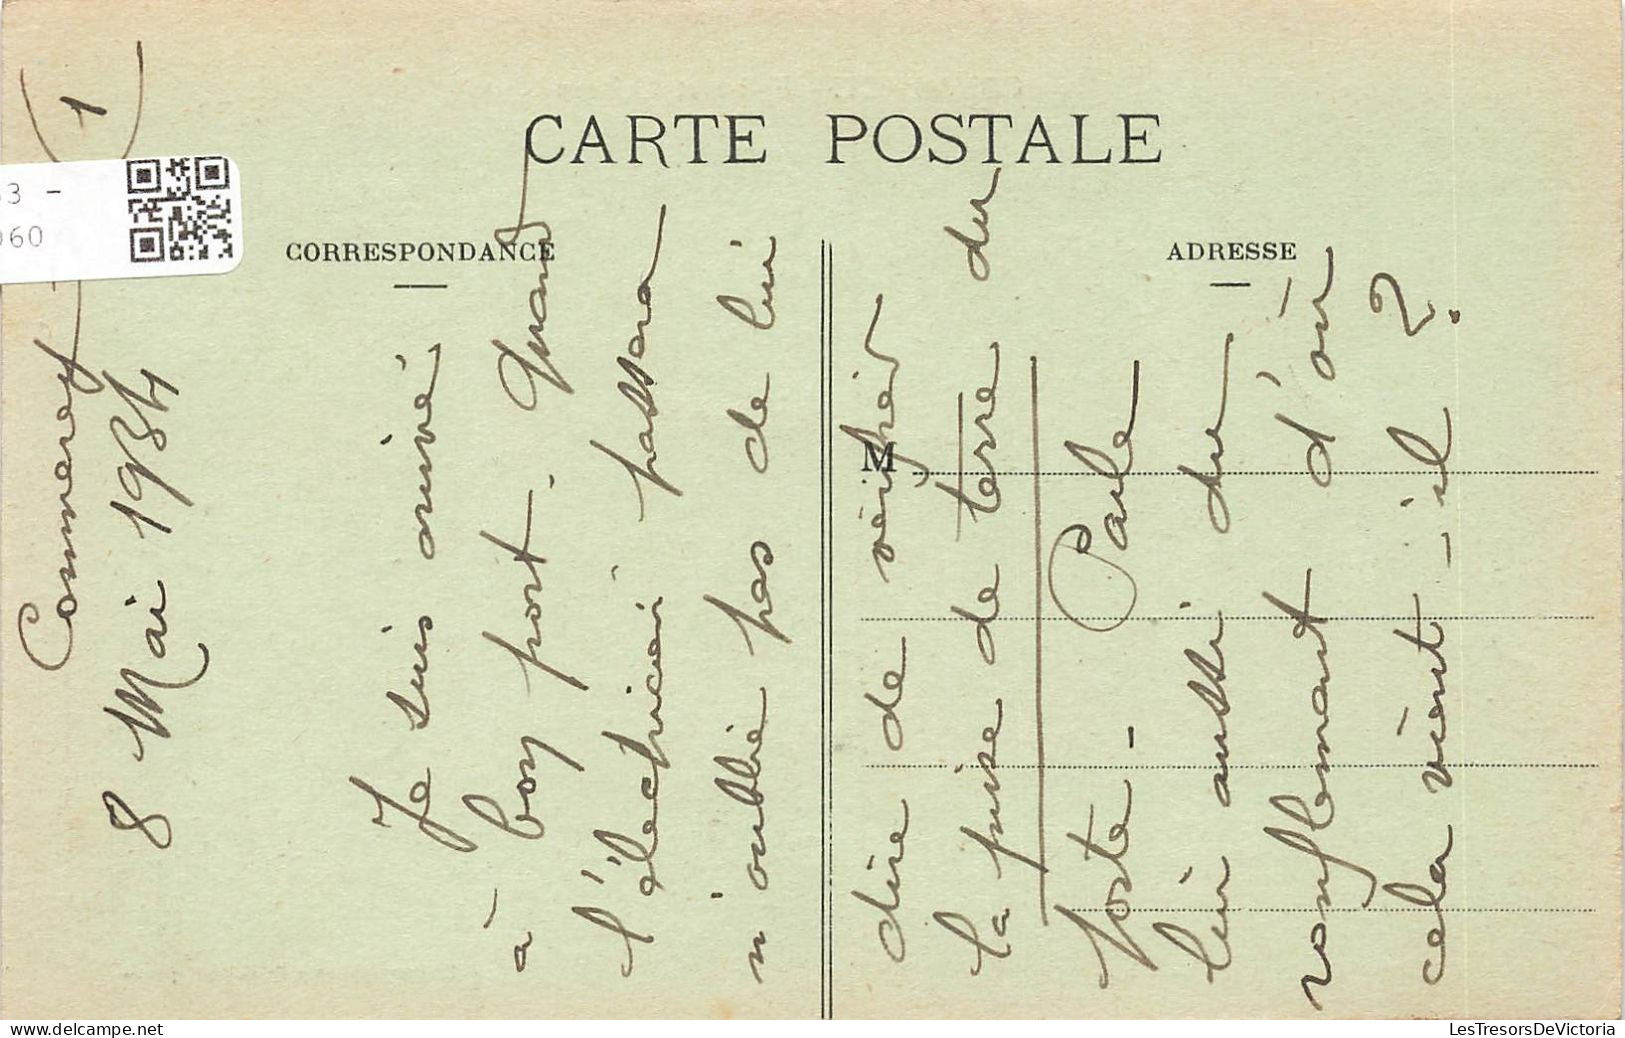 CARTE POSTALE
CORRESPONDANCE
ADRESSE
M
53 -
060
1
Commercy
8 Mai 1934
Je suis arrivé
à bon port. Quand
l'électricien passera
n'oublie pas de lui
dire de vérifier
la prise de terre du
poste - Parle
lui aussi du
ronflement d'où
cela vient-il ?
LesTresorsDeVictoria.com